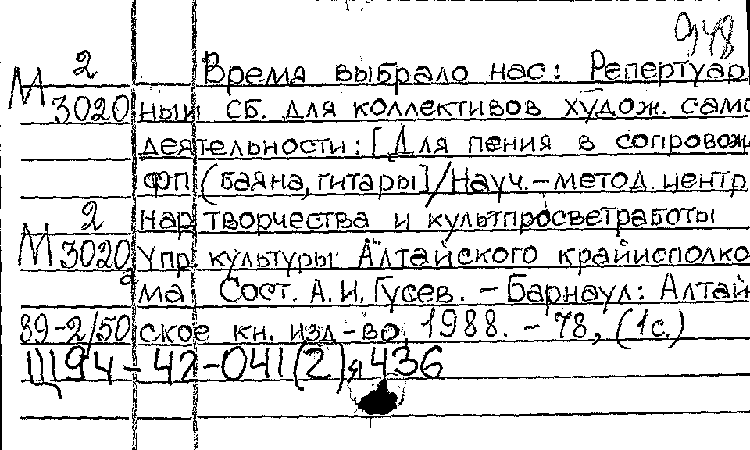 948
М 2 Время выбрало нас: Репертуар
3020 ный сб. для коллективов худож. само
деятельности: [Для пения в сопровож
фп (баяна, гитары]/Науч.-метод. центр
2 нар творчества и культпросветработы
М 3020 Упр. культуры Алтайского крайисполко
а ма Сост. А.И. Гусев. - Барнаул: Алтай
89-2/50 ское кн. изд-во, 1988. - 78, (1с.)
Щ194-42-041(2)я436